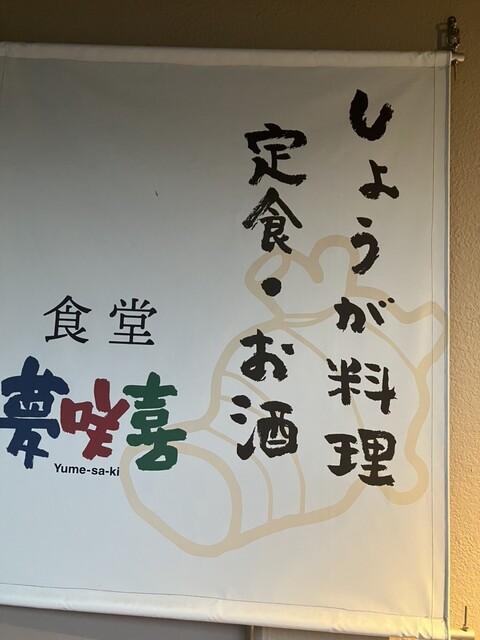 しょうが料理
定食・お酒
食堂
夢咲喜
Yume-sa-ki